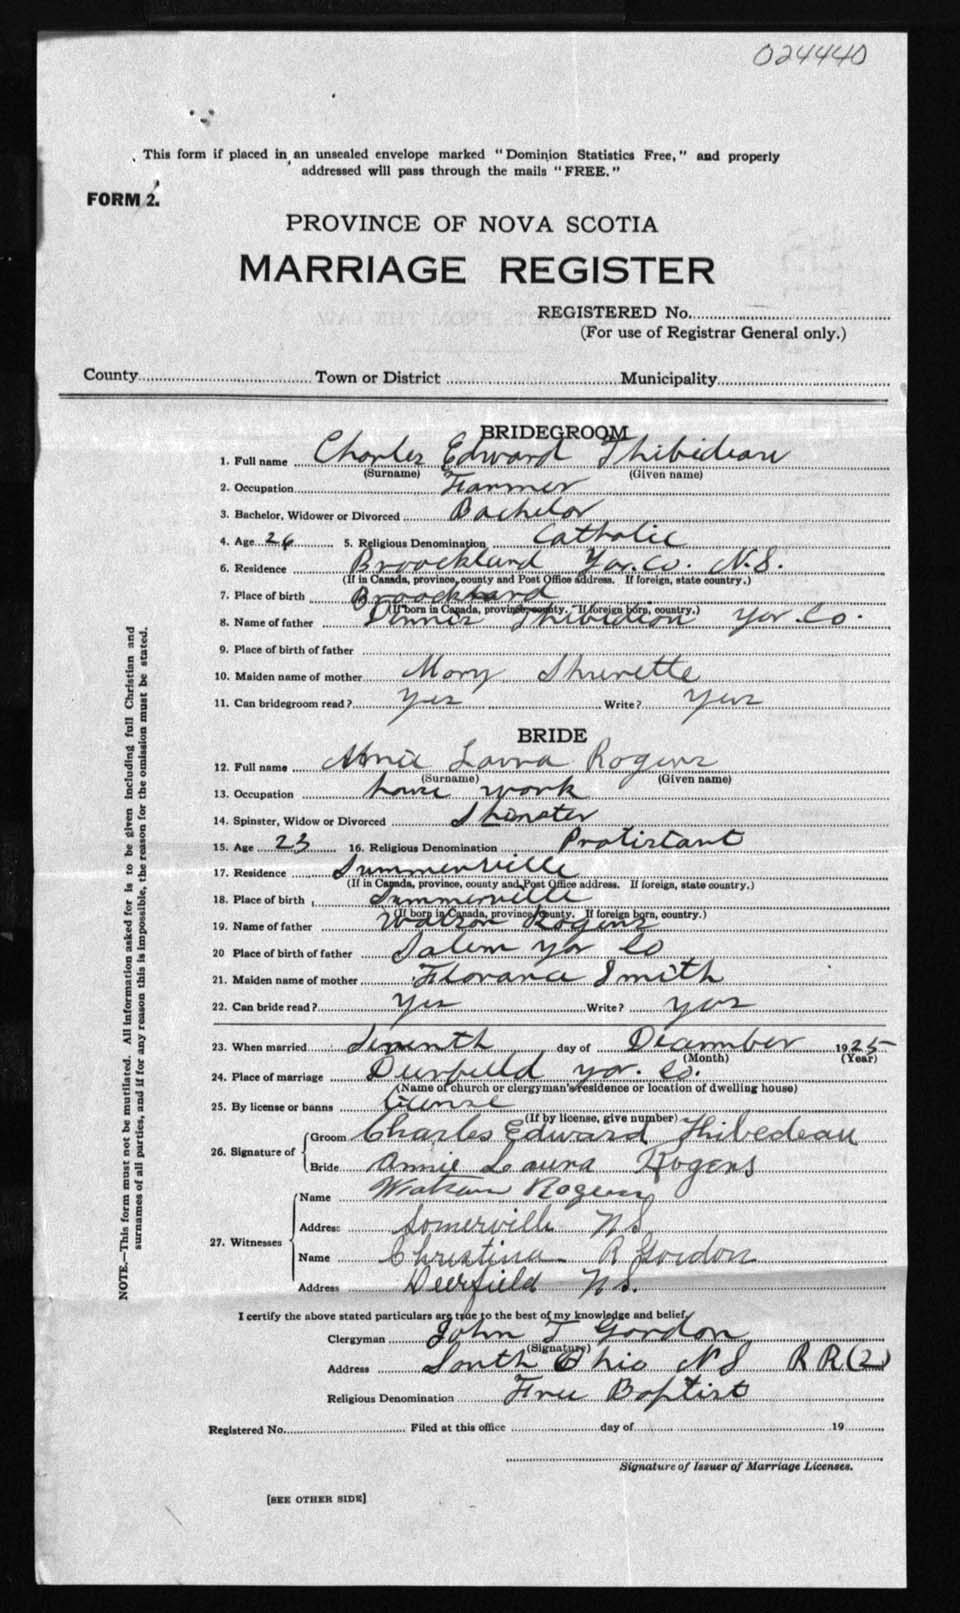 024440
This form if placed in an unsealed envelope marked "Dominion Statistics Free," and properly
addressed will pass through the mails "FREE."
FORM 2.
PROVINCE OF NOVA SCOTIA
MARRIAGE REGISTER
REGISTERED No.
(For use of Registrar General only.)
County Town or District Municipality
BRIDEGROOM
1. Full name Charles Edward Thibideau
(Surname) (Given name)
2. Occupation Farmer
3. Bachelor, Widower or Divorced Bachelor
4. Age 26 5. Religious Denomination Catholic
6. Residence Broockland Yar. Co. N.S.
(If in Canada, province, county and Post Office address. If foreign, state country.)
7. Place of birth Broockland
(If born in Canada, province, county. If foreign born, country.)
8. Name of father Thibidion Yar. Co.
9. Place of birth of father
10. Maiden name of mother Mary
11. Can bridegroom read? Yes Write? Yes
BRIDE
12. Full name Laura Rogers
(Surname) (Given name)
13. Occupation house work
14. Spinster, Widow or Divorced Spinster
15. Age 23 16. Religious Denomination Protistant
17. Residence Summerville
(If in Canada, province, county and Post Office address. If foreign, state country.)
18. Place of birth Summerville
(If born in Canada, province, county. If foreign born, country.)
19. Name of father Watson Rogers
20 Place of birth of father Salem Yar Co
21. Maiden name of mother Smith
22. Can bride read? Yes Write? Yes
23. When married Seventh day of December 1925
(Month) (Year)
24. Place of marriage Deerfield Yar. Co.
(Name of church or clergyman's residence or location of dwelling house)
25. By license or banns
(If by license, give number)
26. Signature of Groom Charles Edward Thibedeau
Bride Annie Laura Rogers
27. Witnesses Name Watson Rogers
Address Somerville NS
Name Christina R Gordon
Address Deerfield NS.
I certify the above stated particulars are true to the best of my knowledge and belief.
Clergyman John T Gordon
(Signature)
Address South Ohio NS RR(2)
Religious Denomination Free Baptist
Registered No. Filed at this office day of 19
Signature of Issuer of Marriage Licenses.
[SEE OTHER SIDE]
NOTE.—This form must not be mutilated. All information asked for is to be given including full Christian and
surnames of all parties, and if for any reason this is impossible, the reason for the omission must be stated.